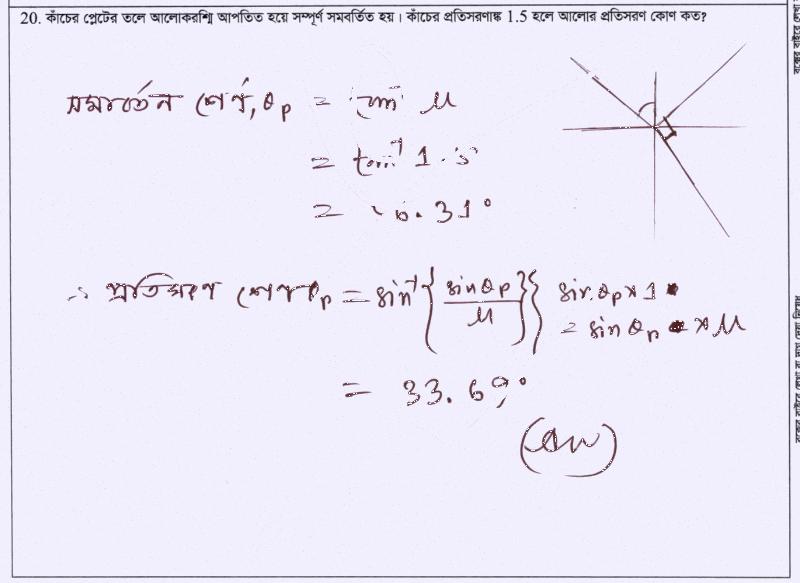 20. কাঁচের প্লেটের তলে আলোকরশ্মি আপতিত হয়ে সম্পূর্ণ সমবর্তিত হয়। কাঁচের প্রতিসরণাঙ্ক 1.5 হলে আলোর প্রতিসরণ কোণ কত?
সমবর্তন কোণ, θp = tan⁻¹ μ
= tan⁻¹ 1.5
= .31°
∴ প্রতিসরণ কোণ θp = sin⁻¹ { sin θp / μ } { sin θp × 1
= sin θp × μ
= 33.69°
(Ans)